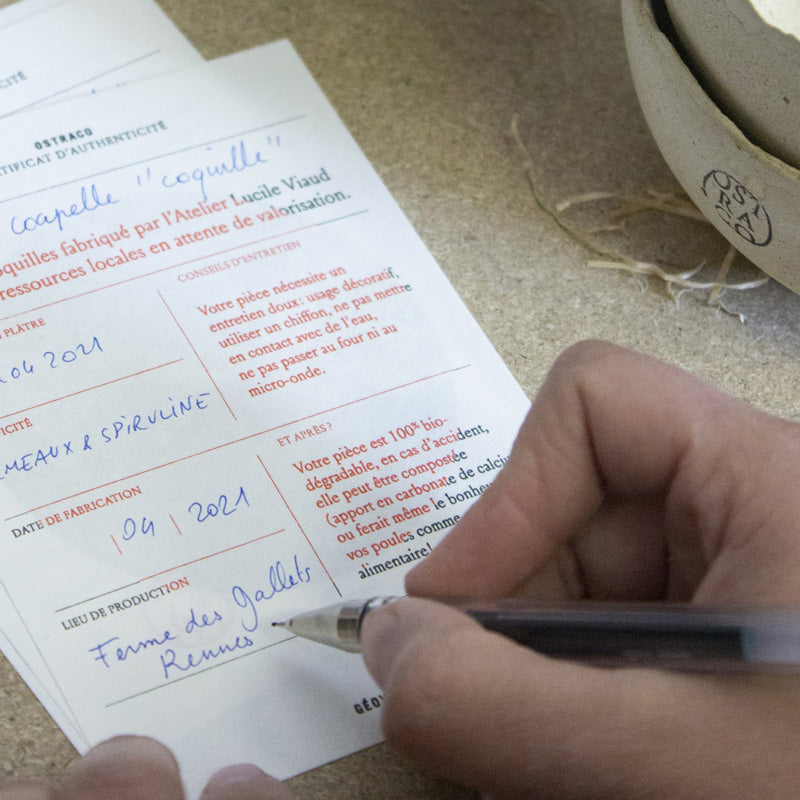 CITÉ
OSTRACO
TIFICAT D'AUTHENTICITÉ
coapelle "coquille"
oquilles fabriqué par l'Atelier Lucile Viaud
ressources locales en attente de valorisation.
PLÂTRE
04 2021
CONSEILS D'ENTRETIEN
Votre pièce nécessite un
entretien doux: usage décoratif,
utiliser un chiffon, ne pas mettre
en contact avec de l'eau,
ne pas passer au four ni au
micro-onde.
ICITÉ
RMEAUX & SPIRULINE
DATE DE FABRICATION
04 | 2021
ET APRÈS?
Votre pièce est 100% bio-
dégradable, en cas d'accident,
elle peut être compostée
(apport en carbonate de calciu
ou ferait même le bonheu
vos poules comme
alimentaire!
LIEU DE PRODUCTION
Ferme des Gallets
Rennes
GÉO
OSTRACO